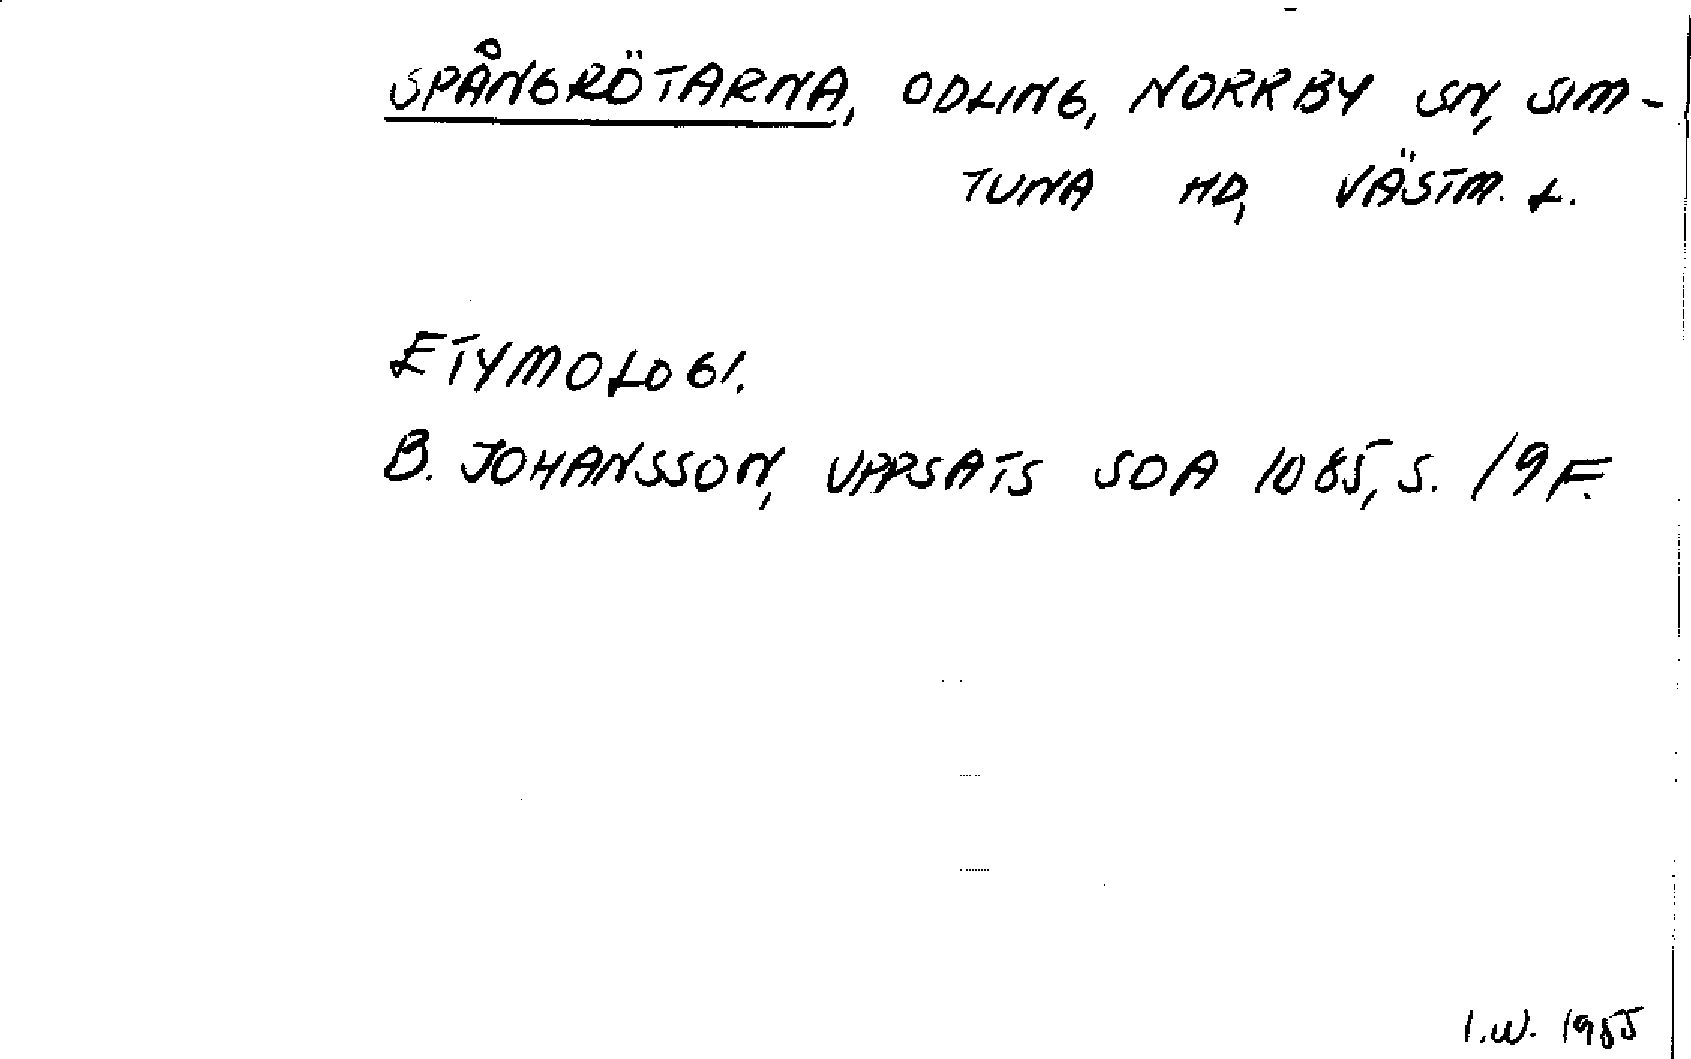 SPÅNGRÖTARNA, ODLING, NORRBY SN, SIM-
TUNA HD, VÄSTM. L.
ETYMOLOGI.
B. JOHANSSON, UPPSATS SOA 1085, S. 19 F.
I.W. 1985